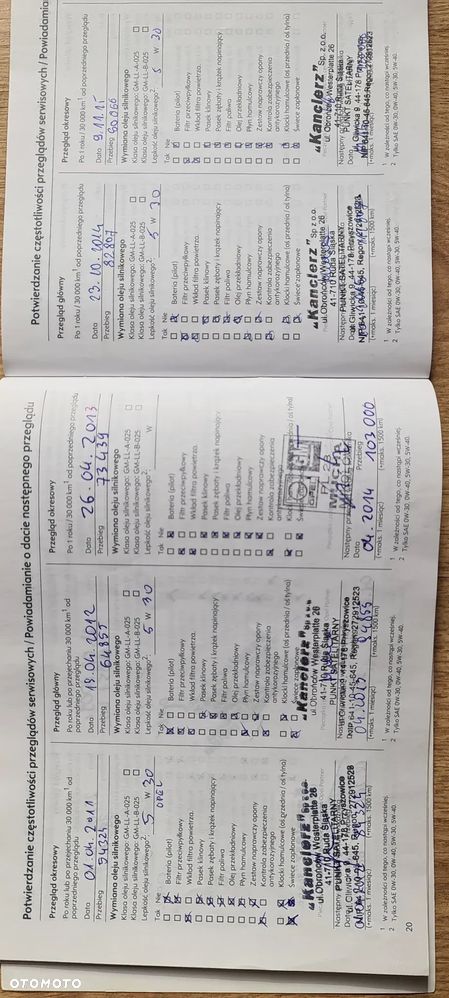 Potwierdzanie częstotliwości przeglądów serwisowych / Powiadamianie o dacie następnego przeglądu
Przegląd okresowy
Po roku lub po przejechaniu 30 000 km¹ od
poprzedniego przeglądu
Data 01.04.2011
Przebieg
Wymiana oleju silnikowego
Klasa oleju silnikowego: GM-LL-A-025
Klasa oleju silnikowego: GM-LL-B-025
Lepkość oleju silnikowego²: 5 W 30
OPEL
Tak Nie
Bateria (pilot)
Filtr przeciwpyłkowy
Wkład filtra powietrza
Pasek klinowy
Pasek zębaty i krążek napinający
Filtr paliwa
Olej przekładniowy
Płyn hamulcowy
Zestaw naprawczy opony
Kontrola zabezpieczenia
antykorozyjnego
Klocki hamulcowe (oś przednia / oś tylna)
Świece zapłonowe
"Kanclerz" Sp. z o.o.
ul. Obrońców Westerplatte 26
41-710 Ruda Śląska
PUNKT SATELITARNY
ul. Gliwicka 9 44-178 Przyszowice
(maks. 1 miesiąc) (maks. 1500 km)
1 W zależności od tego, co nastąpi wcześniej.
2 Tylko SAE 0W-30, 0W-40, 5W-30, 5W-40.
20
Przegląd główny
Po roku lub po przejechaniu 30 000 km¹ od
poprzedniego przeglądu
Data 19.04.2012
Przebieg 64857
Wymiana oleju silnikowego
Klasa oleju silnikowego: GM-LL-A-025
Klasa oleju silnikowego: GM-LL-B-025
Lepkość oleju silnikowego²: 5 W 30
Tak Nie
Bateria (pilot)
Filtr przeciwpyłkowy
Wkład filtra powietrza
Pasek klinowy
Pasek zębaty i krążek napinający
Filtr paliwa
Olej przekładniowy
Płyn hamulcowy
Zestaw naprawczy opony
Kontrola zabezpieczenia
antykorozyjnego
Klocki hamulcowe (oś przednia / oś tylna)
Świece zapłonowe
"Kanclerz" Sp. z o.o.
ul. Obrońców Westerplatte 26
41-710 Ruda Śląska
PUNKT SATELITARNY
ul. Gliwicka 9 44-178 Przyszowice
NIP 641-10-45-645, Regon 272912523
04.2013
(maks. 1 miesiąc) (maks. 1500 km)
1 W zależności od tego, co nastąpi wcześniej.
2 Tylko SAE 0W-30, 0W-40, 5W-30, 5W-40.
Przegląd okresowy
Po 1 roku / 30 000 km¹ od poprzedniego przeglądu
Data 26.04.2013
Przebieg 73439
Wymiana oleju silnikowego
Klasa oleju silnikowego: GM-LL-A-025
Klasa oleju silnikowego: GM-LL-B-025
Lepkość oleju silnikowego²: W
Tak Nie
Bateria (pilot)
Filtr przeciwpyłkowy
Wkład filtra powietrza
Pasek klinowy
Pasek zębaty i krążek napinający
Filtr paliwa
Olej przekładniowy
Płyn hamulcowy
Zestaw naprawczy opony
Kontrola zabezpieczenia
antykorozyjnego
Data Przebieg
04.2014 103000
(maks. 1 miesiąc) (maks. 1500 km)
1 W zależności od tego, co nastąpi wcześniej.
2 Tylko SAE 0W-30, 0W-40, 5W-30, 5W-40.
Potwierdzanie częstotliwości przeglądów serwisowych / Powiadamia
Przegląd główny
Po 1 roku / 30 000 km¹ od poprzedniego przeglądu
Data 23.10.2014
Przebieg 82807
Wymiana oleju silnikowego
Klasa oleju silnikowego: GM-LL-A-025
Klasa oleju silnikowego: GM-LL-B-025
Lepkość oleju silnikowego²: 5 W 30
Tak Nie
Bateria (pilot)
Filtr przeciwpyłkowy
Wkład filtra powietrza
Pasek klinowy
Pasek zębaty i krążek napinający
Filtr paliwa
Olej przekładniowy
Płyn hamulcowy
Zestaw naprawczy opony
Kontrola zabezpieczenia
antykorozyjnego
Klocki hamulcowe (oś przednia / oś tylna)
Świece zapłonowe
"Kanclerz" Sp. z o.o.
ul. Obrońców Westerplatte 26
41-710 Ruda Śląska
PUNKT SATELITARNY
ul. Gliwicka 9 44-178 Przyszowice
(maks. 1 miesiąc) (maks. 1500 km)
1 W zależności od tego, co nastąpi wcześniej.
2 Tylko SAE 0W-30, 0W-40, 5W-30, 5W-40.
Przegląd okresowy
Po 1 roku / 30 000 km¹ od poprzedniego przeglądu
Data 9.11.15
Przebieg
Wymiana oleju silnikowego
Klasa oleju silnikowego: GM-LL-A-025
Klasa oleju silnikowego: GM-LL-B-025
Lepkość oleju silnikowego²: 5 W 30
Tak Nie
Bateria (pilot)
Filtr przeciwpyłkowy
Wkład filtra powietrza
Pasek klinowy
Pasek zębaty i krążek napinający
Filtr paliwa
Olej przekładniowy
Płyn hamulcowy
Zestaw naprawczy opony
Kontrola zabezpieczenia
antykorozyjnego
Klocki hamulcowe (oś przednia / oś tylna)
Świece zapłonowe
"Kanclerz" Sp. z o.o.
ul. Obrońców Westerplatte 26
41-710 Ruda Śląska
PUNKT SATELITARNY
NIP 641-10-45-645, Regon 272912523
(maks. 1 miesiąc)
1 W zależności od tego, co nastąpi wcześniej.
2 Tylko SAE 0W-30, 0W-40, 5W-30, 5W-40.
OTOMOTO